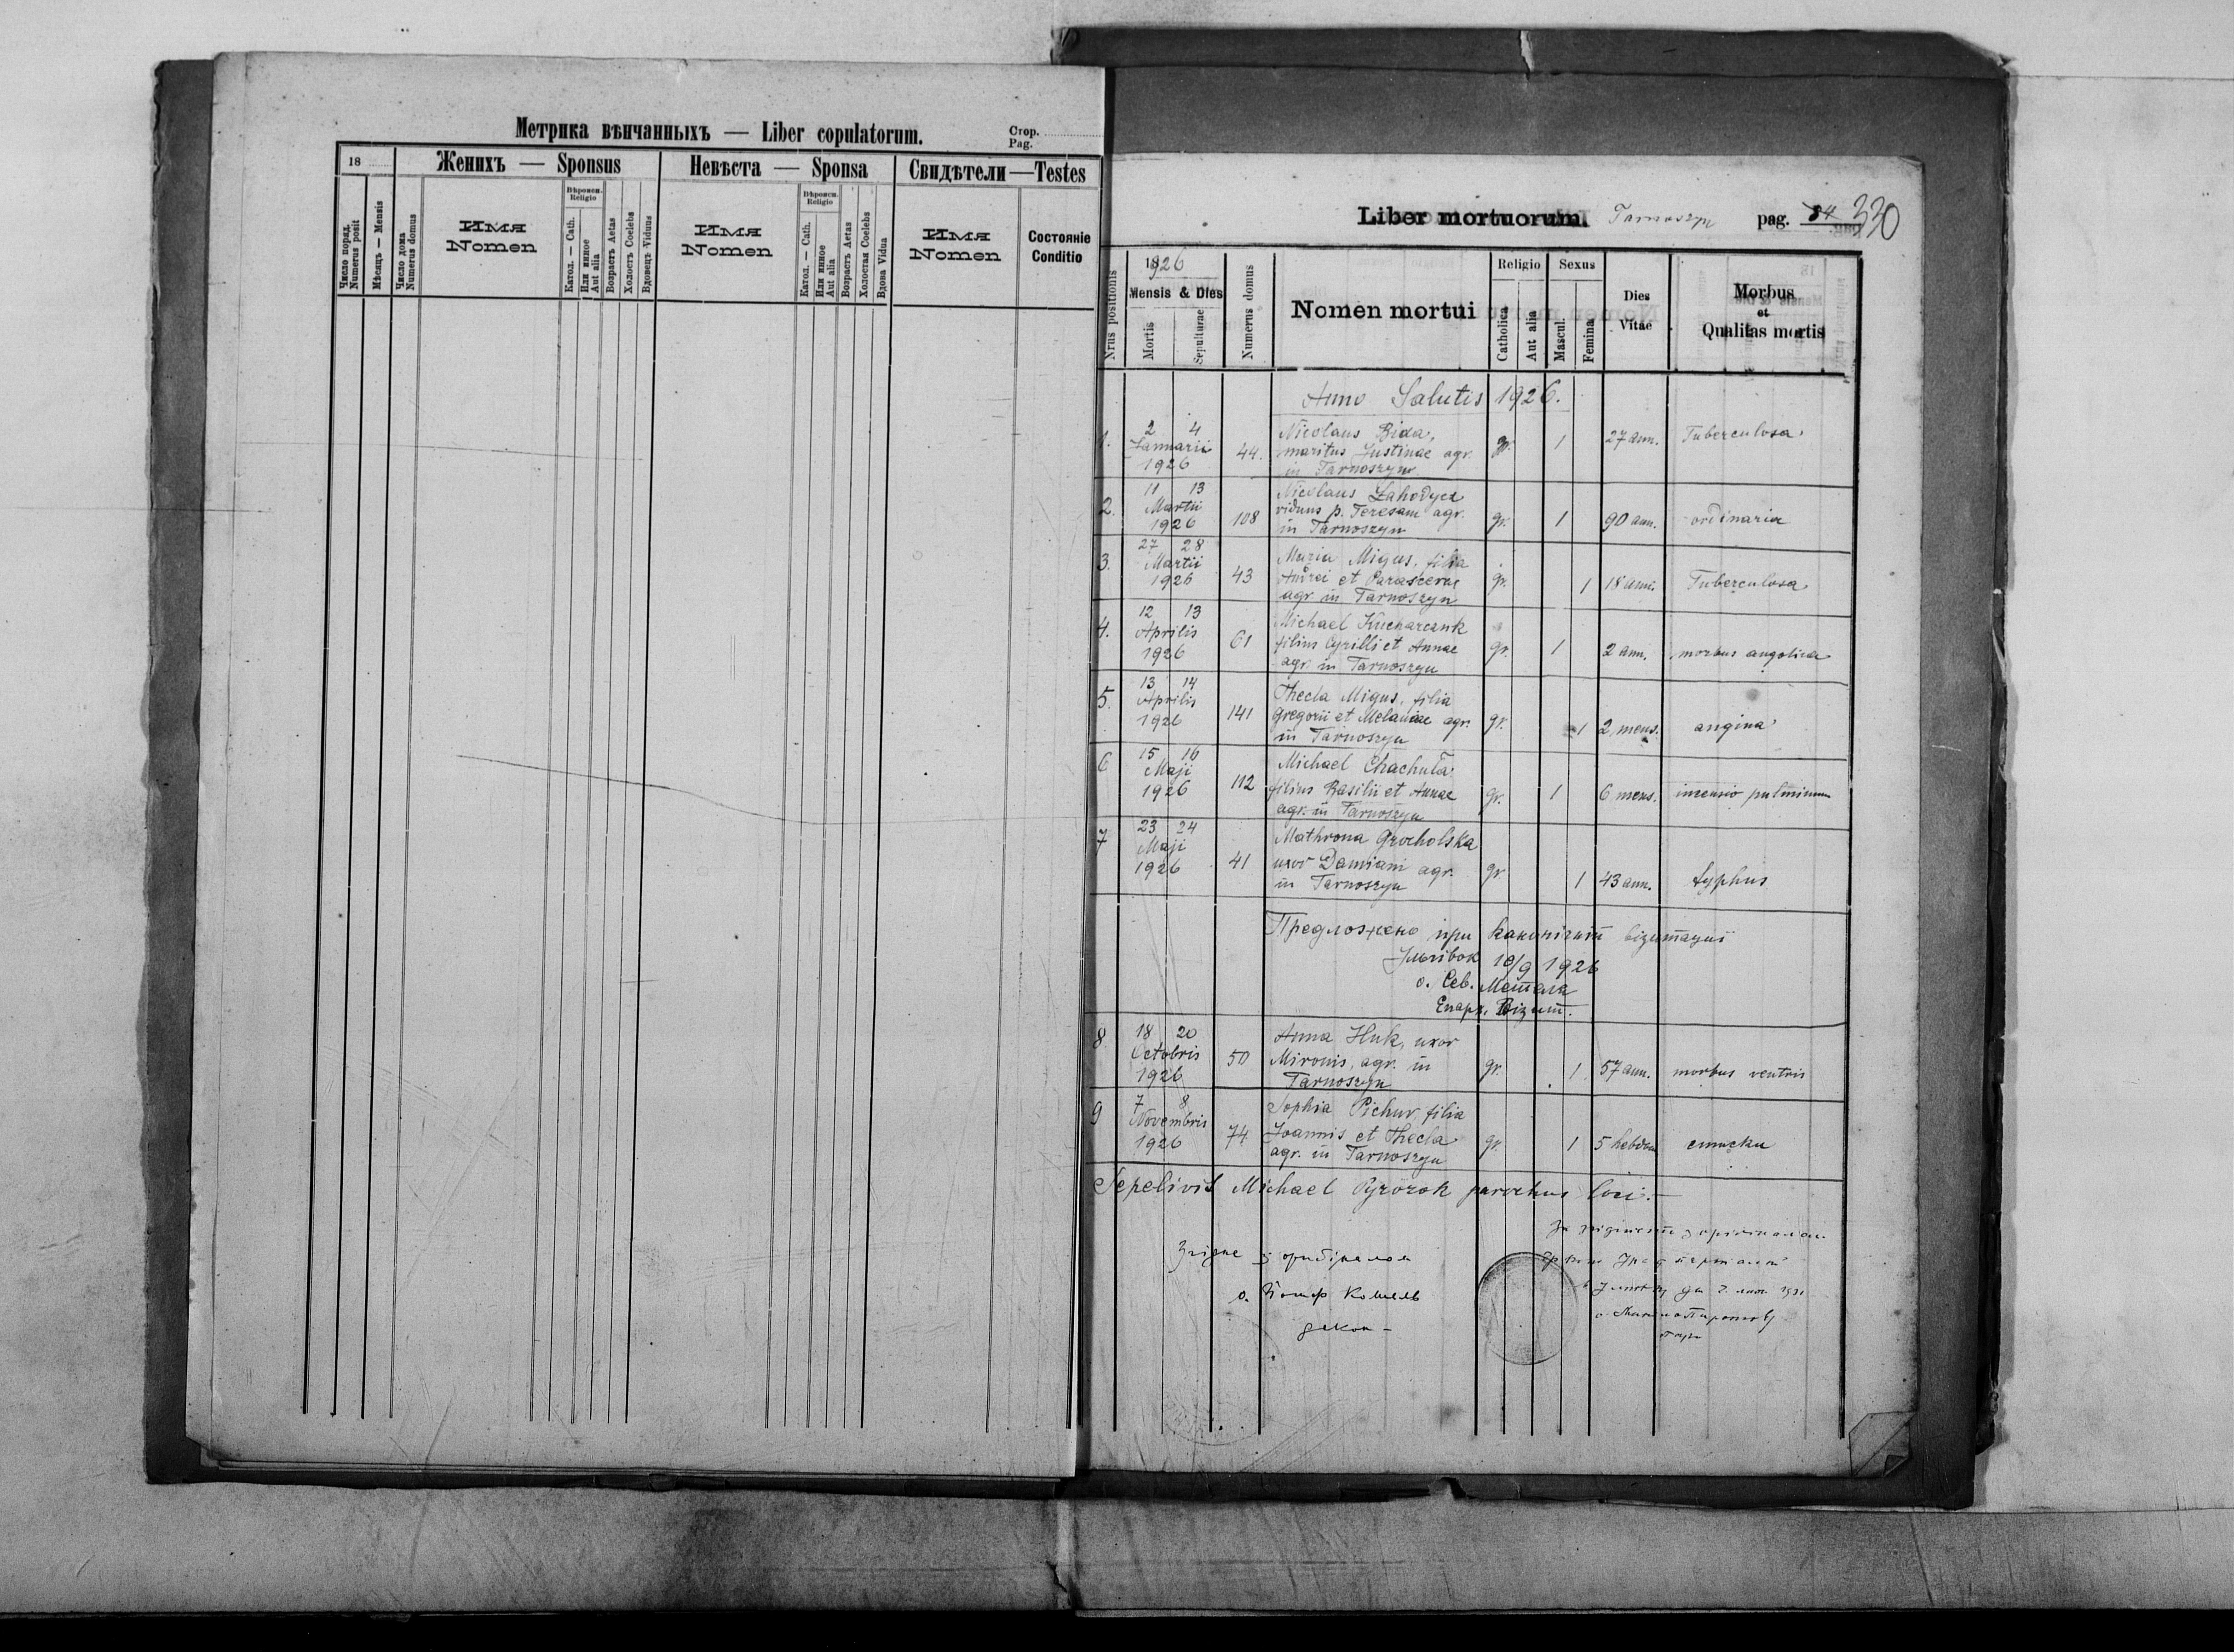 Метрика вѣнчанныхъ — Liber copulatorum.
Стор.
Pag.
18
Женихъ — Sponsus
Невѣста — Sponsa
Свидѣтели — Testes
Число поряд.
Numerus posit
Мѣсяць — Mensis
Число дома
Numerus domus
Имя
Nomen
Вѣроисп.
Religio
Катол. — Cath.
Или инное
Aut alia
Возрастъ Aetas
Холостъ Coelebs
Вдовецъ Viduus
Имя
Nomen
Вѣроисп.
Religio
Катол. — Cath.
Или инное
Aut alia
Возрастъ Aetas
Холостая Coelebs
Вдова Vidua
Имя
Nomen
Состояніе
Conditio
Liber mortuorum Tarnoszyn pag. 84 330
Nrus positionis
1926
Mensis & Dies
Mortis
Sepulturae
Numerus domus
Nomen mortui
Religio
Catholica
Aut alia
Sexus
Mascul.
Femina
Dies
Vitae
Morbus
et
Qualitas mortis
Anno Salutis 1926.
1. 2 4 Januarii 1926 44. Nicolaus Bida,
maritus Justinae agr.
in Tarnoszyn
gr. 1 27 ann. Tuberculosa
2. 11 13 Martii 1926 108 Nicolaus Zahodycz
viduus p. Teresam agr.
in Tarnoszyn
gr. 1 90 ann. ordinaria
3. 27 28 Martii 1926 43 Maria Migus, filia
Andrei et Parascevae
agr. in Tarnoszyn
gr. 1 18 ann. Tuberculosa
4. 12 13 Aprilis 1926 61 Michael Kucharczuk
filius Cyrilli et Annae
agr. in Tarnoszyn
gr. 1 2 ann. morbus angolica
5. 13 14 Aprilis 1926 141 Thecla Migus, filia
Gregorii et Melaniae agr.
in Tarnoszyn
gr. 1 2 mens. angina
6 15 16 Maji 1926 112 Michael Chachuła
filius Basilii et Annae
agr. in Tarnoszyn
gr. 1 6 mens.
7 23 24 Maji 1926 41 Mathrona Grocholska
uxor Damiani agr.
in Tarnoszyn
gr 1 43 ann. typhus
Предложено при канонічній візитації
10/9 1926
о. Сев. Метелля
Епарх. Візит.
8 18 20 Octobris 1926 50 Anna Huk, uxor
Mironis, agr. in
Tarnoszyn
gr. 1 57 ann. morbus ventris
9 7 8 Novembris 1926 74 Sophia Pichur, filia
Joannis et Thecla
agr. in Tarnoszyn
gr. 1 5 hebdom
Sepelivit Michael Pyrożok parochus loci. —
Згідне з оригіналом
о. Йосиф
декан —